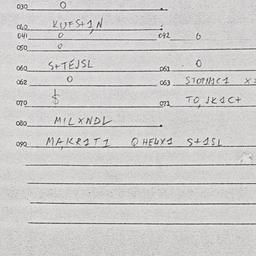 030 0
040 KUFS+1,N
041 0 042 6
050 0
060 S+TEJSL 061 0
062 0 063 STOPNIC1 X
070 $ 071 TO,JK1C+
080 MILXNDL
090 MA,KR1T1 QHEWX1 S+1SL